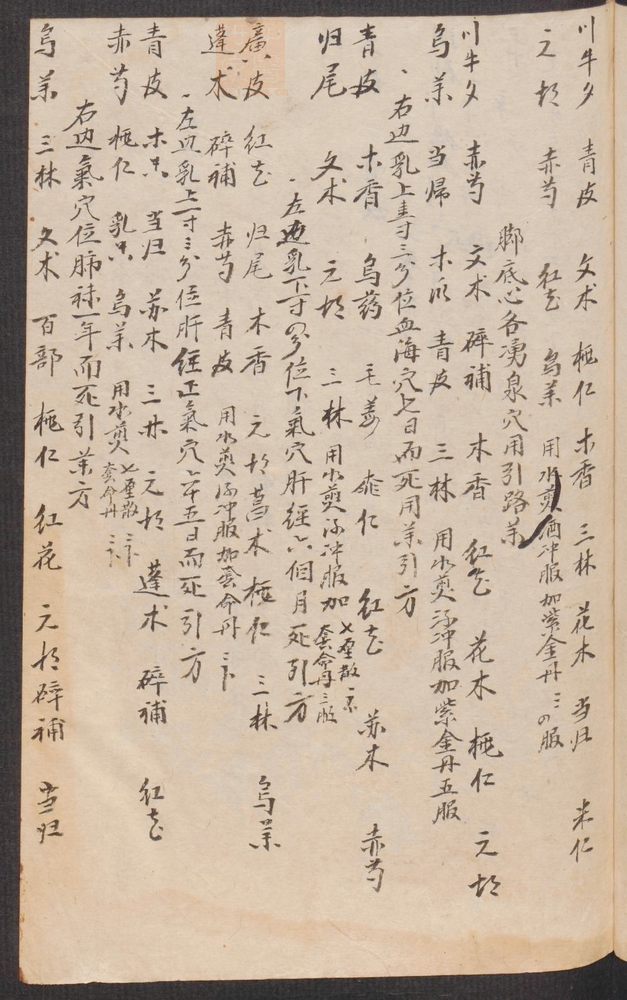 川牛夕 青皮 文术 桃仁 木香 三林 花木 当归 米仁
元胡 赤芍 红花 乌药 用水煎酒冲服加紫金丹三四服
脚底心各湧泉穴用引路药
川牛夕 赤芍 文术 碎補 木香 红花 花木 桃仁 元胡
乌药 当歸 木瓜 青皮 三林 用水煎酒冲服加紫金丹五服
右边乳上壹寸三分位血海穴七日而死用药引方
青皮 木香 乌药 毛姜 桃仁 红花 苏木 赤芍
归尾 文术 元胡 三林 用水煎酒冲服加七厘散 奪命丹三服
左边乳下一寸四分位下氣穴肝經六個月死引方
廣皮 红花 归尾 木香 元胡 莪术 桃仁 三林 乌药
蓬术 碎補 赤芍 青皮 用水煎酒冲服加奪命丹三卜
左边乳上一寸三分位肝經正氣穴 五日而死引方
青皮 木香 当归 苏木 三林 元胡 蓬术 碎補 红花
赤芍 桃仁 乳香 乌药 用水煎 七厘散 奪命丹
右边氣穴位肺 一年而死引药方
乌药 三林 文术 百部 桃仁 红花 元胡 碎補 当归